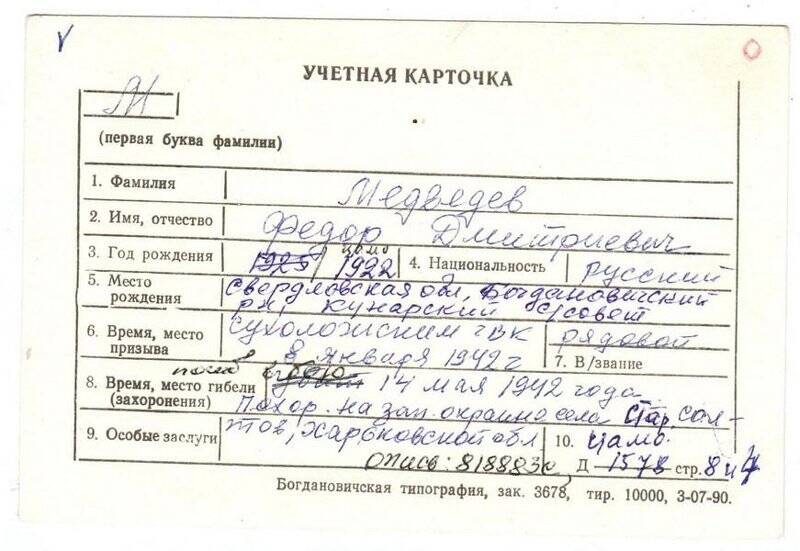 УЧЕТНАЯ КАРТОЧКА
М
(первая буква фамилии)
1. Фамилия Медведев
2. Имя, отчество Федор Дмитриевич
3. Год рождения 1925 / цамо 1922 4. Национальность русский
5. Место рождения Свердловская обл, Богдановичский
р-н, Кунарский с/совет
6. Время, место призыва Сухоложским ГВК рядовой
8 января 1942 г 7. В/звание
погиб в бою
8. Время, место гибели (захоронения) 14 мая 1942 года
Похор. на зап. окраине села Стар. Сал-
9. Особые заслуги тов, Харьковской обл 10. цамо.
опись: 818883с Д - 1573 стр. 8
Богдановичская типография, зак. 3678, тир. 10000, 3-07-90.